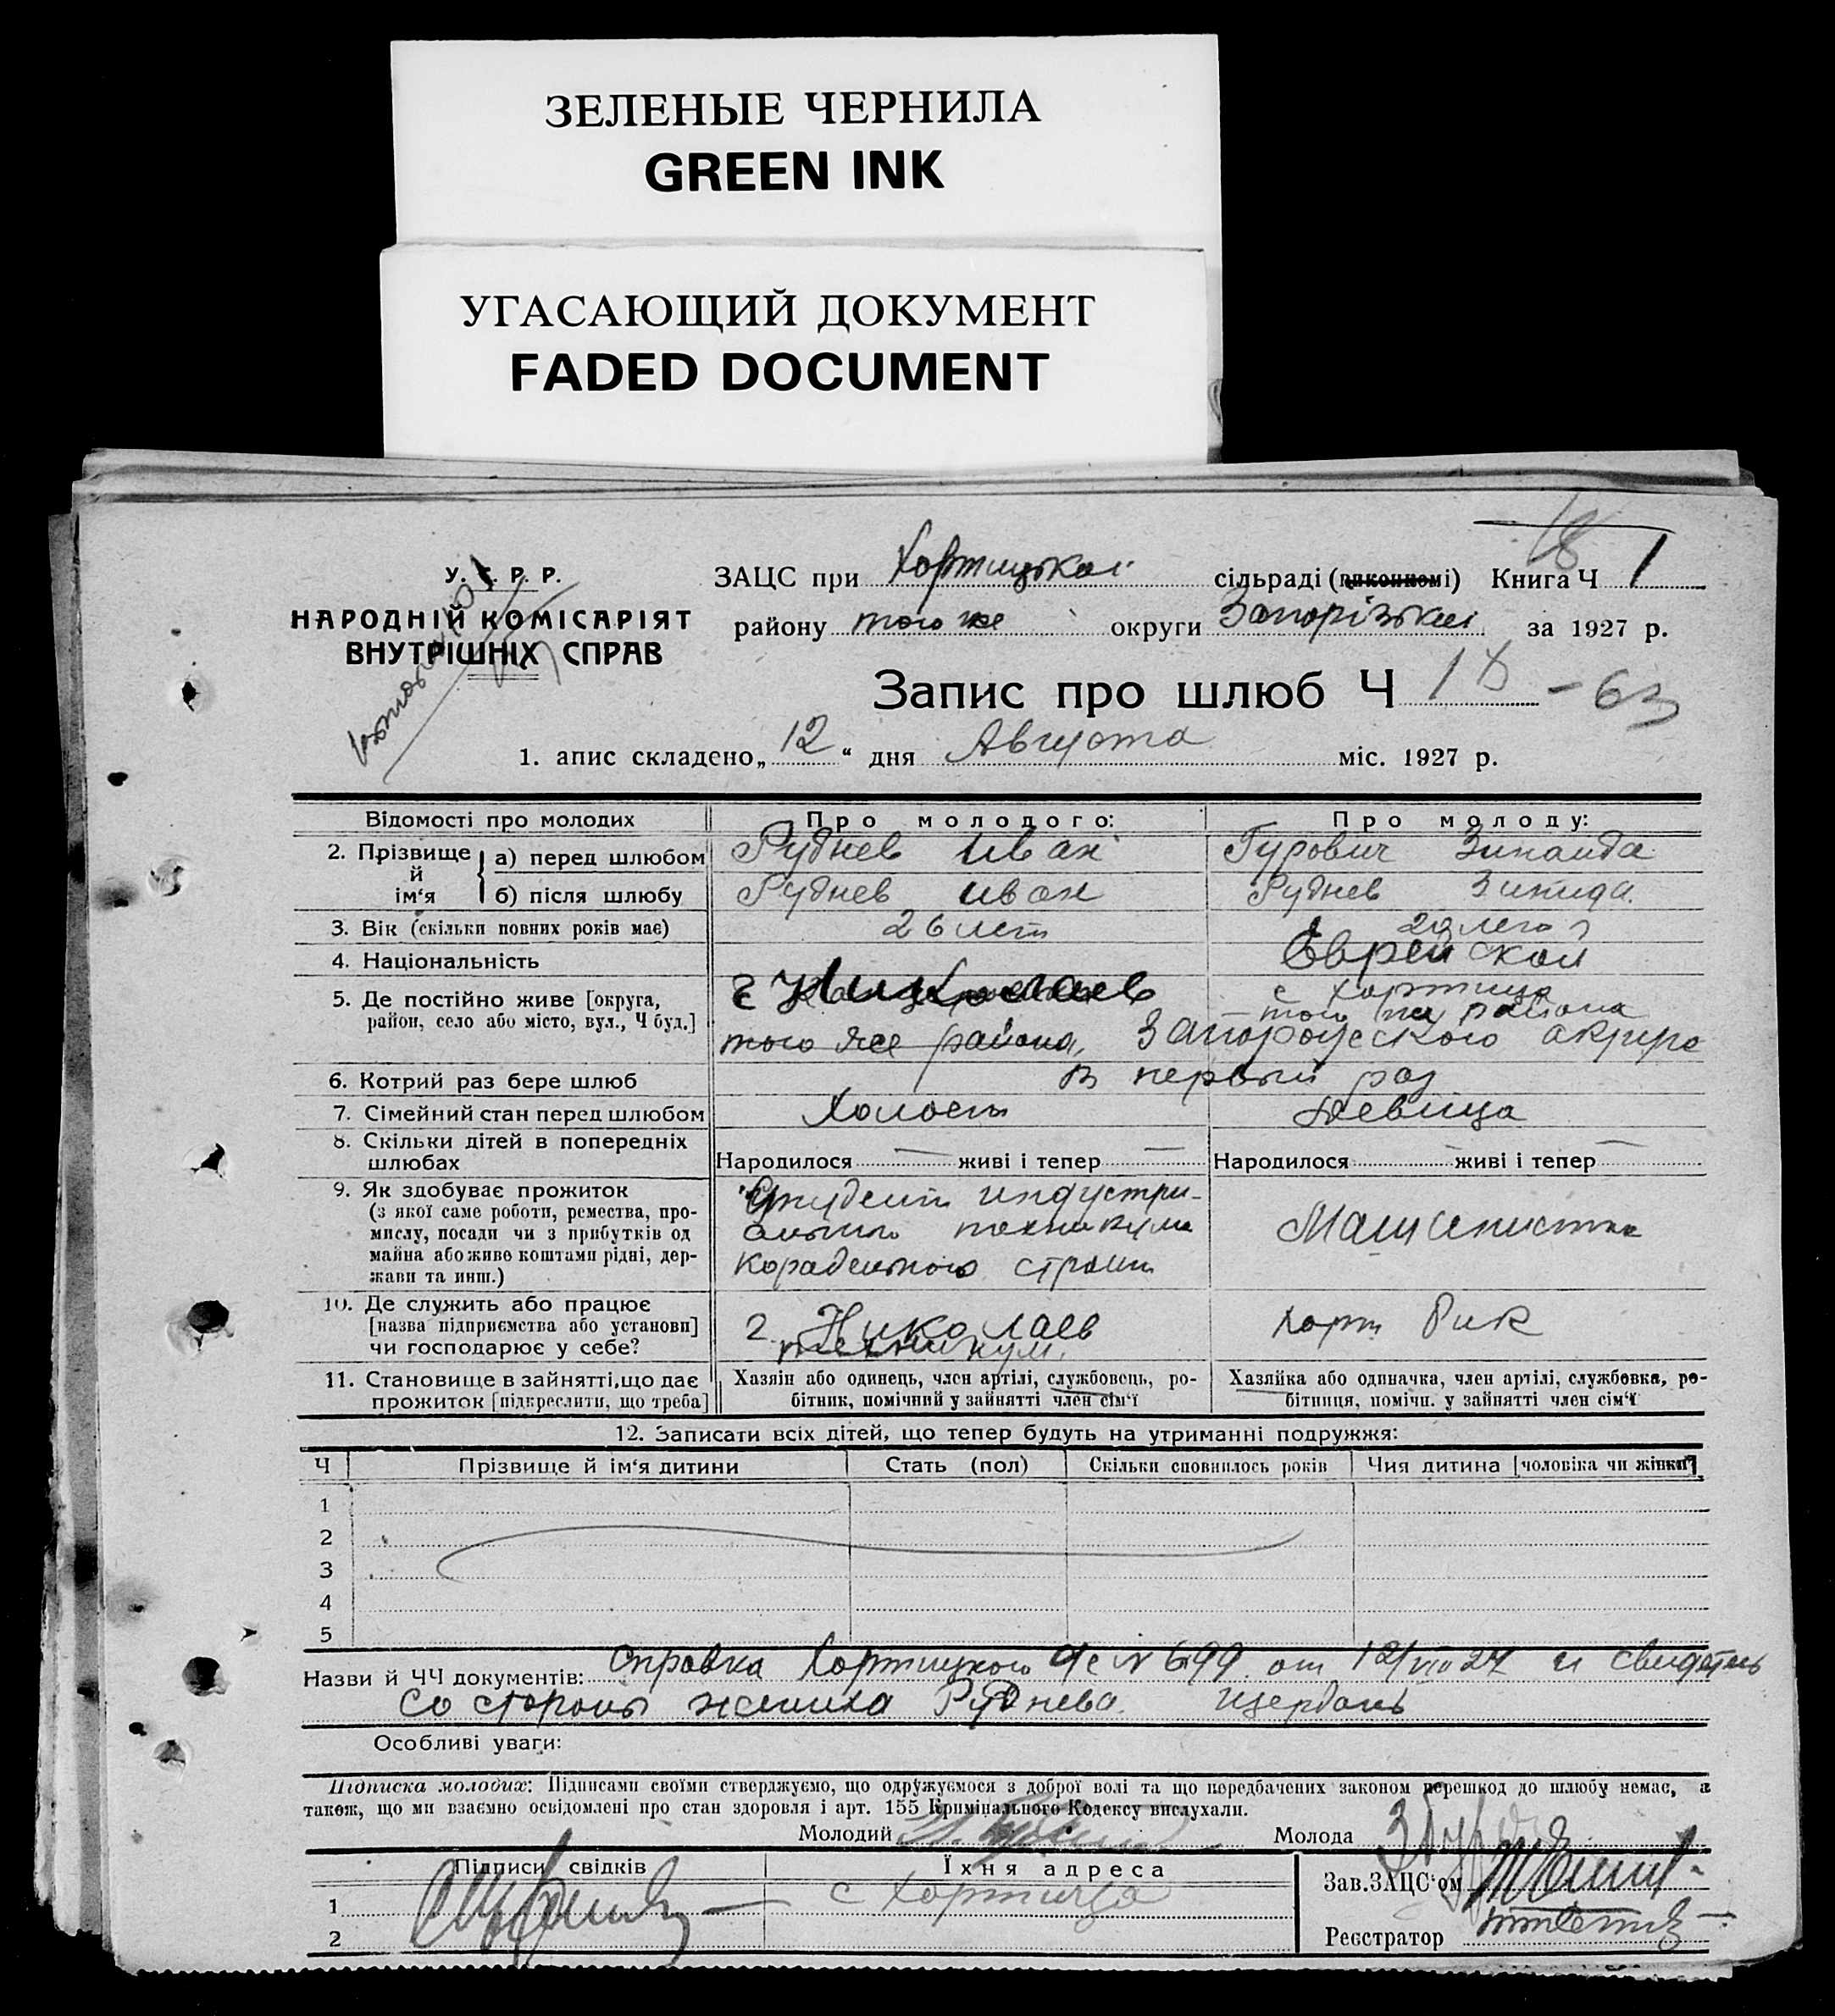 ЗЕЛЕНЫЕ ЧЕРНИЛА
GREEN INK
УГАСАЮЩИЙ ДОКУМЕНТ
FADED DOCUMENT
18
У. С. Р. Р.
НАРОДНІЙ КОМІСАРІЯТ
ВНУТРІШНІХ СПРАВ
ЗАЦС при Хортицькой сільраді (виконкомі) Книга Ч 1
району того же округи Запорізькой за 1927 р.
Запис про шлюб Ч 18 - 63
1. апис складено „ 12 “ дня Августа міс. 1927 р.
Відомості про молодих
Про молодого:
Про молоду:
2. Прізвище й ім‘я
а) перед шлюбом
Руднев Иван
Гурович Зинаида
б) після шлюбу
Руднев Иван
Руднев Зинида
3. Вік (скільки повних років має)
26 лет
20 лет
4. Національність
Еврейской
5. Де постійно живе [округа, район, село або місто, вул., Ч буд.]
г Николаев
того же района,
с Хортица
того же района
Запорожского округа
6. Котрий раз бере шлюб
В первый раз
7. Сімейний стан перед шлюбом
Холост
Девица
8. Скільки дітей в попередніх шлюбах
Народилося — живі і тепер —
Народилося живі і тепер —
9. Як здобуває прожиток
(з якої саме роботи, ремества, про-
мислу, посади чи з прибутків од
майна або живе коштами рідні, дер-
жави та инш.)
Студент индустри-
ального техникума
корабельного строит
Машинистка
10. Де служить або працює
[назва підприємства або установи]
чи господарює у себе?
г. Николаев
техникум.
Хорт Рик
11. Становище в зайнятті, що дає
прожиток [підкреслити, що треба]
Хазяін або одинець, член артілі, службовець, ро-
бітник, помічний у зайнятті член сім‘ї
Хазяйка або одиначка, член артілі, службовка, ро-
бітниця, помічн. у зайнятті член сім‘ї
12. Записати всіх дітей, що тепер будуть на утриманні подружжя:
Ч Прізвище й ім‘я дитини Стать (пол) Скільки сповнилось років Чия дитина [чоловіка чи жінки]
1
2
3
4
5
Назви й ЧЧ документів: Справка Хортицкого с/с N 699 от 12/VIII 27 и свидетель
со стороны жениха Руднева. Щербань
Особливі уваги:
Підписка молодих: Підписами своїми стверджуємо, що одружуємося з доброї волі та що передбачених законом перешкод до шлюбу немає, а
також, що ми взаємно освідомлені про стан здоровля і арт. 155 Кримінального Кодексу вислухали.
Молодий
Молода
Підписи свідків
Їхня адреса
1 с Хортица
2
Зав. ЗАЦС‘ом
Реєстратор